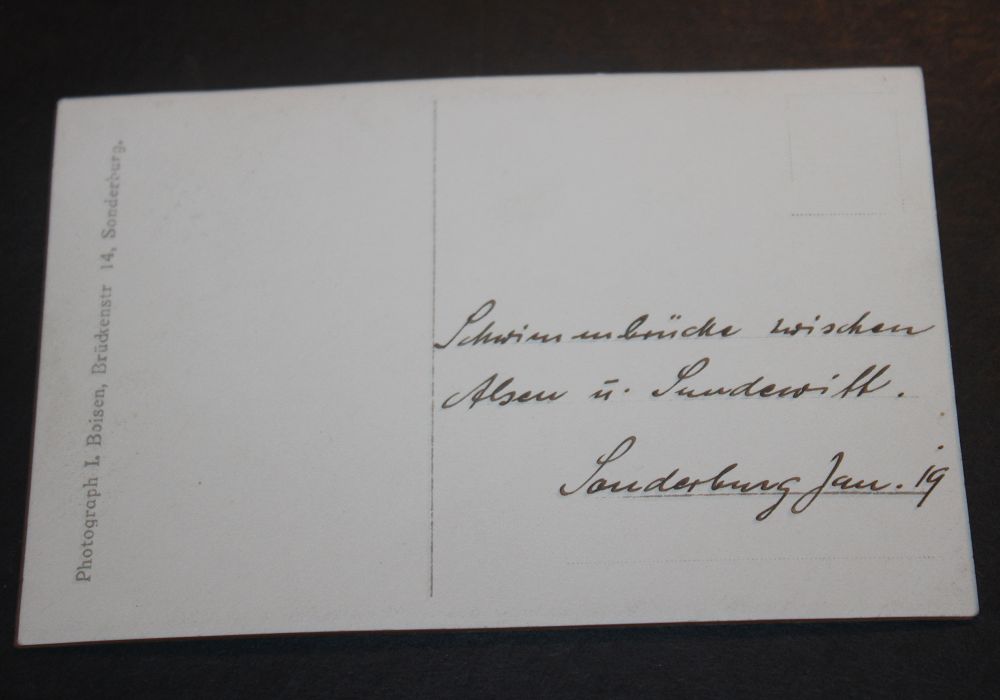 Photograph I. Boisen, Brückenstr 14, Sonderburg.
Schwimmbrücke zwischen
Alsen u. Sundewitt.
Sonderburg Jan. 19